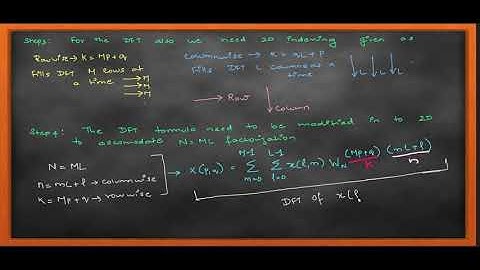 Step3: For the DFT also we need 2D indexing given as
Rowwise → K = Mp+q
Fills DFT M rows at a time
→ M
→ M
→ M
Columnwise → K = qL+p
Fills DFT L columns at a time
↓L ↓L ↓L
→ Row
↓ Column
Step4: The DFT formula need to be modified in to 2D
to accomodate N=ML factorization
N = ML
n = mL+l → columnwise
K = Mp+q → rowwise
X(p,q) = M-1 Σ m=0 L-1 Σ l=0 x(l,m) W_N^(Mp+q)(mL+l)
K n
DFT of x(l